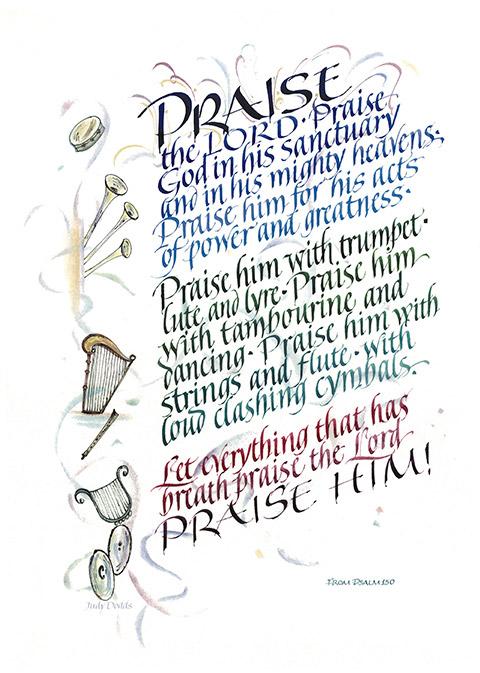 PRAISE
the LORD · Praise
God in his sanctuary
and in his mighty heavens;
Praise him for his acts
of power and greatness ·
Praise him with trumpet ·
lute and lyre · Praise him
with tambourine and
dancing · Praise him with
strings and flute · with
loud clashing cymbals.
Let everything that has
breath praise the Lord
PRAISE HIM!
FROM PSALM 150
Judy Dodds